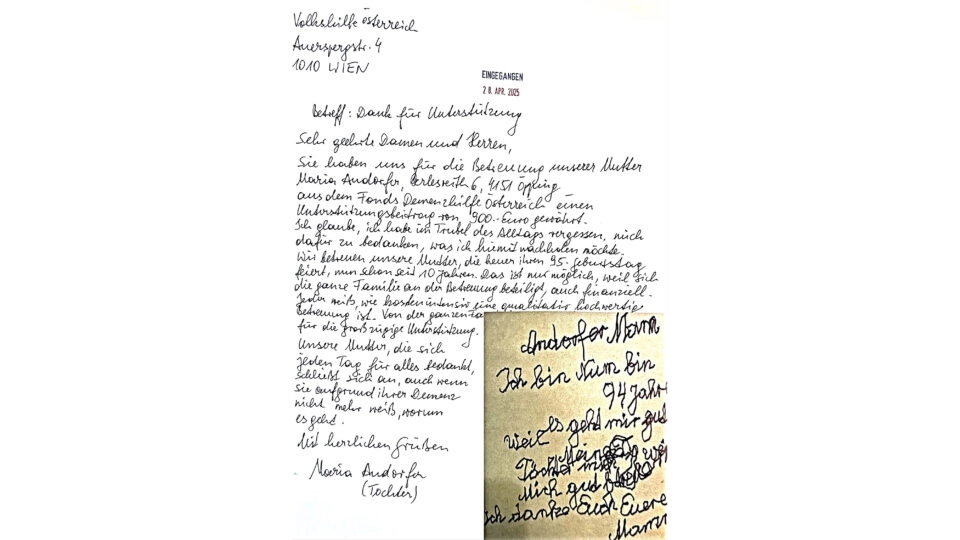 Volkshilfe Österreich
Auerspergstr. 4
1010 WIEN
EINGEGANGEN
28. APR. 2025
Betreff: Dank für Unterstützung
Sehr geehrte Damen und Herren,
Sie haben uns für die Betreuung unserer Mutter
Maria Andorfer, 6, 4151 Öpping
aus dem Fonds Demenzhilfe Österreich einen
Unterstützungsbeitrag von 900.- Euro gewährt.
Ich glaube, ich habe im Trubel des Alltags vergessen, mich
dafür zu bedanken, was ich hiemit nachholen möchte.
Wir betreuen unsere Mutter, die heuer ihren 95. Geburtstag
feiert, nun schon seit 10 Jahren. Das ist nur möglich, weil sich
die ganze Familie an der Betreuung beteiligt, auch finanziell.
Jeder weiß, wie kostenintensiv eine qualitativ hochwertige
Betreuung ist. Von der ganzen Fa
für die großzügige Unterstützung.
Unsere Mutter, die sich
jeden Tag für alles bedankt,
schließt sich an, auch wenn
sie aufgrund ihrer Demenz
nicht mehr weiß, worum
es geht.
Mit herzlichen Grüßen
Maria Andorfer
(Tochter)
Andorfer Mar
Ich bin Num bin
94 Jahr
es geht mir gut
weil Mein
Töchter mir
Mich gut
Ich danke Euch Eure
Mam